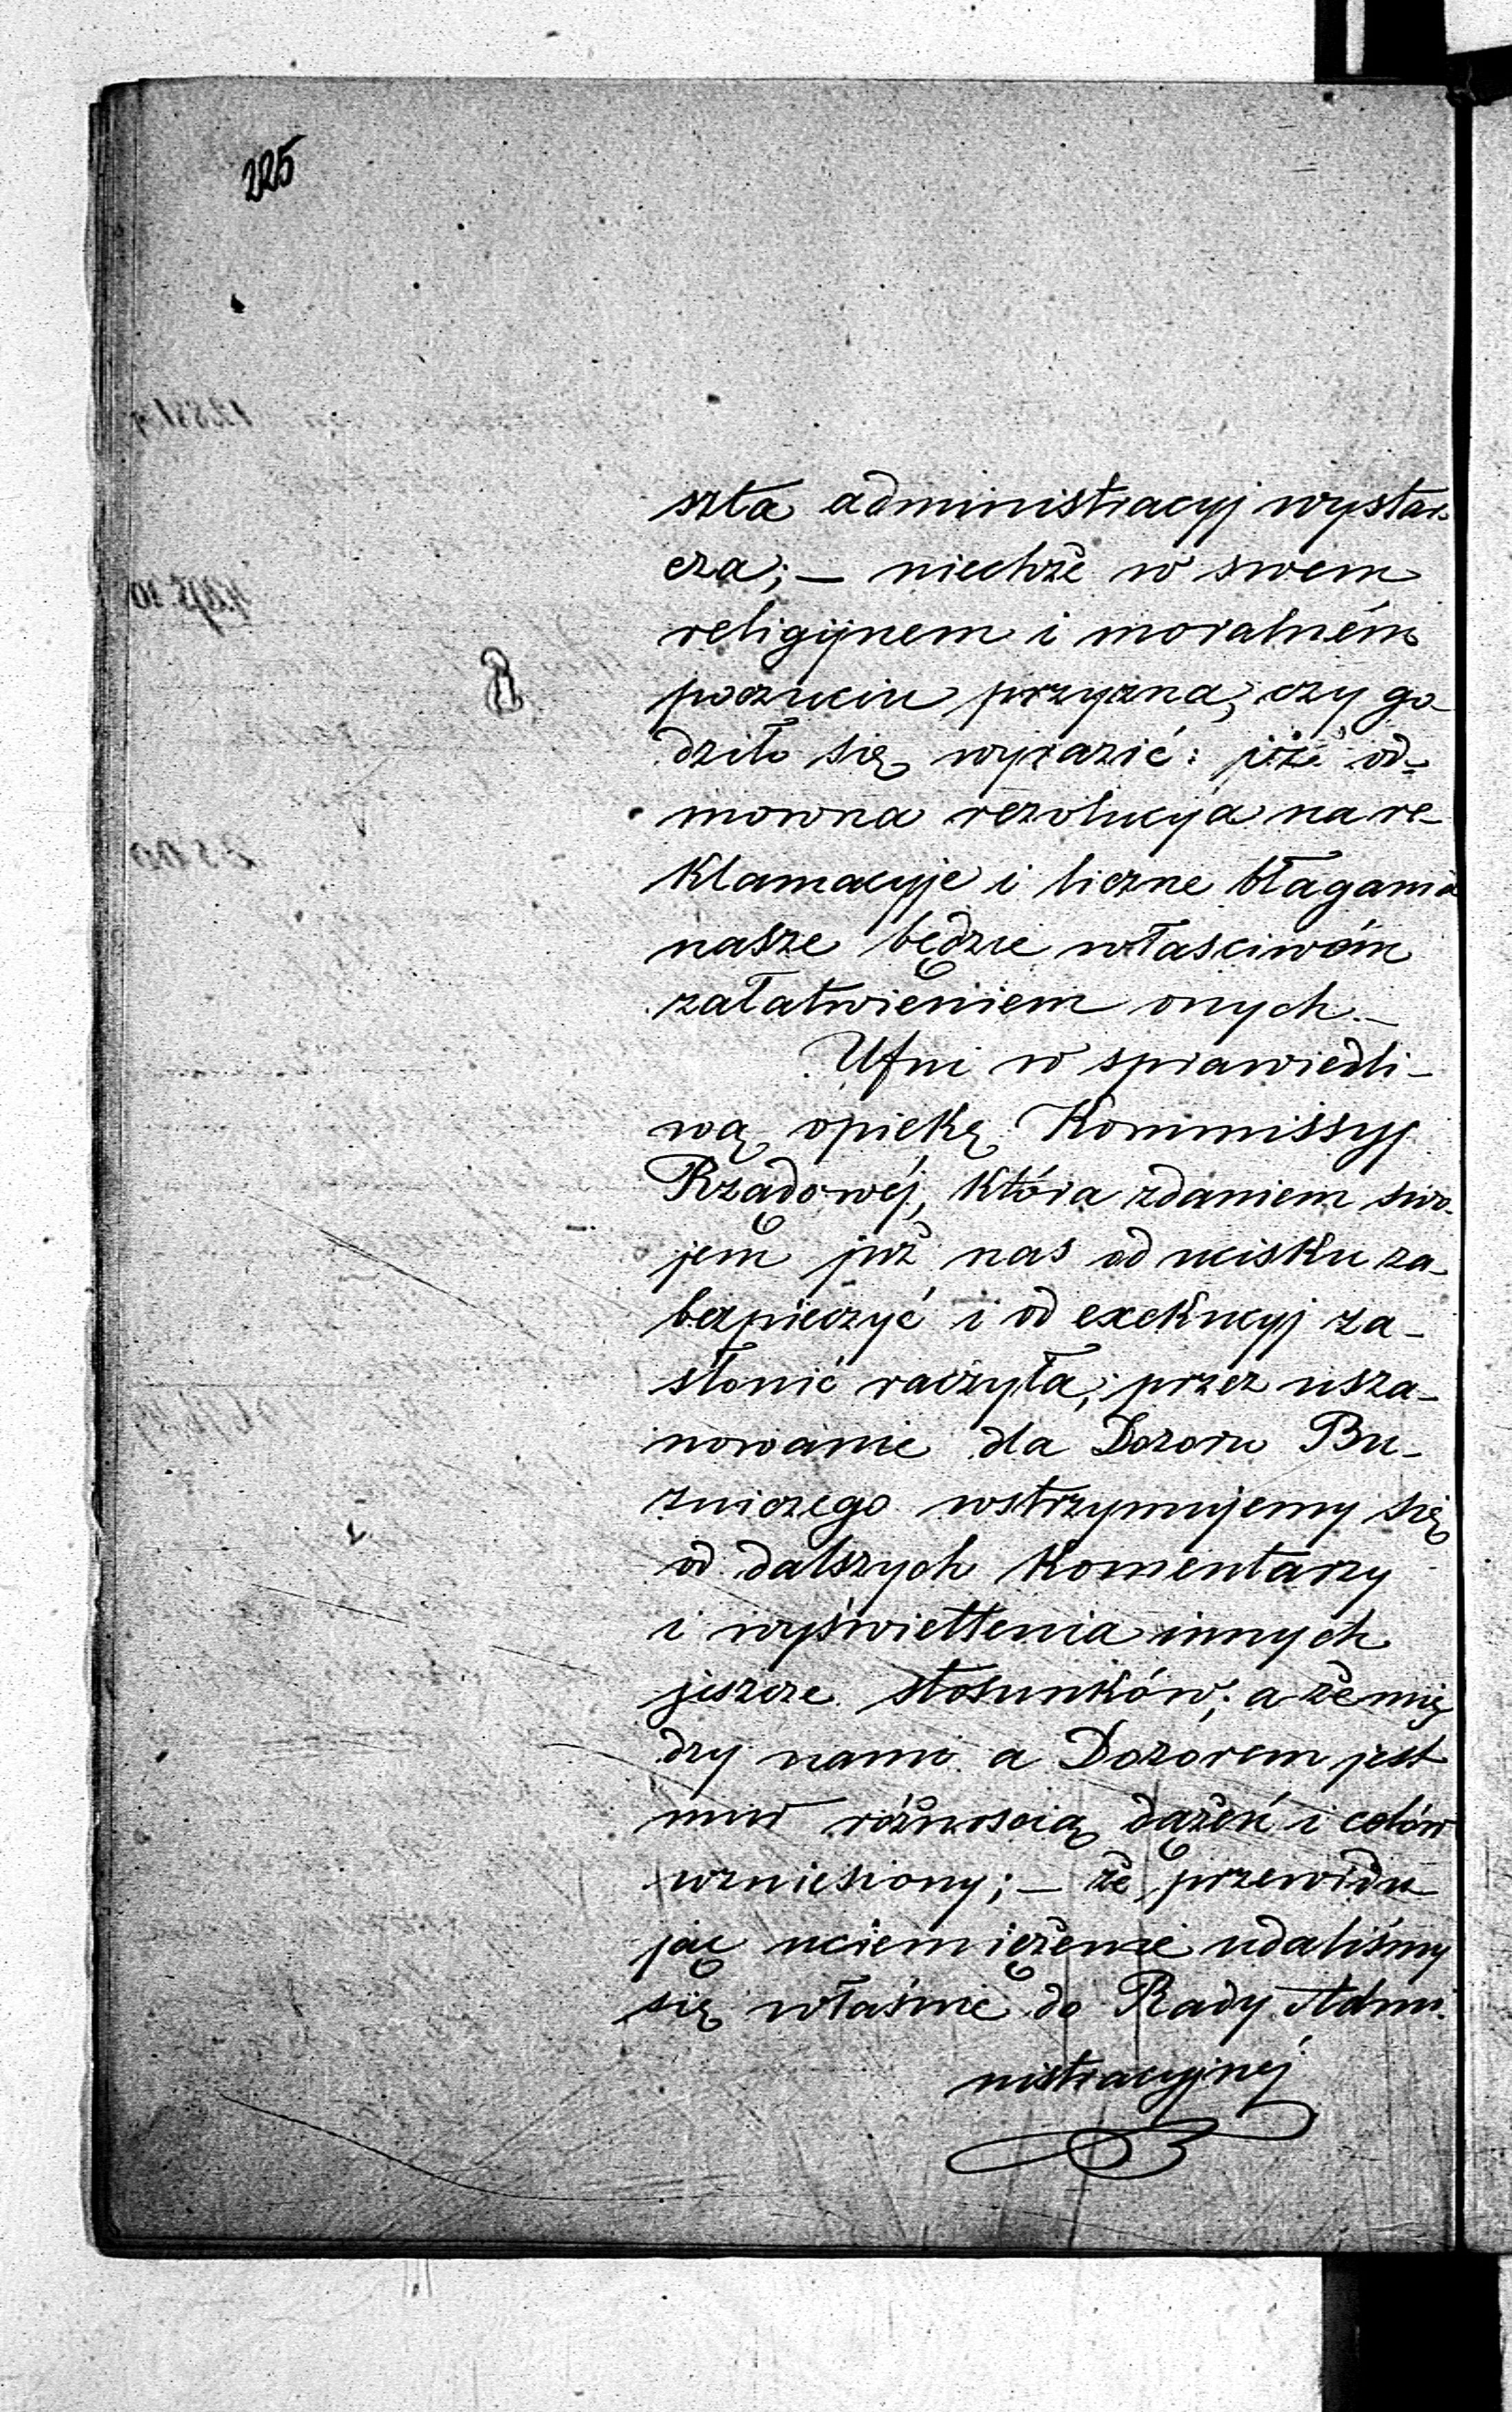 225
szła administracyj wystar-
cza; — niechże w swem
religijnem i moralném
poczuciu przyzna, czy go-
dziło się wyrazić: iże od-
mowna rezolucyja na re-
klamacyje i liczne błagania
nasze będzie właściwém
załatwieniem onych. —
Ufni w sprawiedli-
wą opiekę Kommissyj
Rządowéj, która zdaniem swo-
jem już nas od ucisku za-
bezpieczyć i od exekucyj za-
słonić raczyła; przez usza-
nowanie dla Dozoru Bu-
żniczego wstrzymujemy się
od dalszych komentarzy
i wyświetlenia innych
jeszcze stosunków; a że mię
dzy nami a Dozorem jest
mur różnością dążeń i celów
wzniesiony; — że przewidu
jąc uciemiężenie udaliśmy
się właśnie do Rady Admi-
nistracyjnej